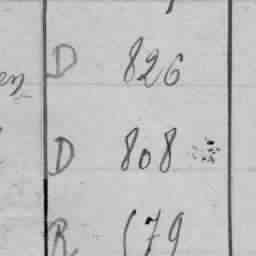 D 826
D 808
R 179